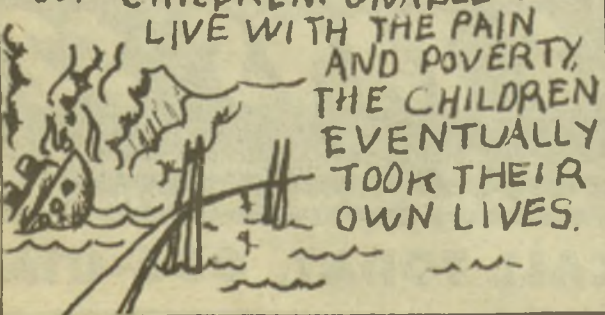 CHILDREN. UNABLE
LIVE WITH THE PAIN
AND POVERTY,
THE CHILDREN
EVENTUALLY
TOOK THEIR
OWN LIVES.